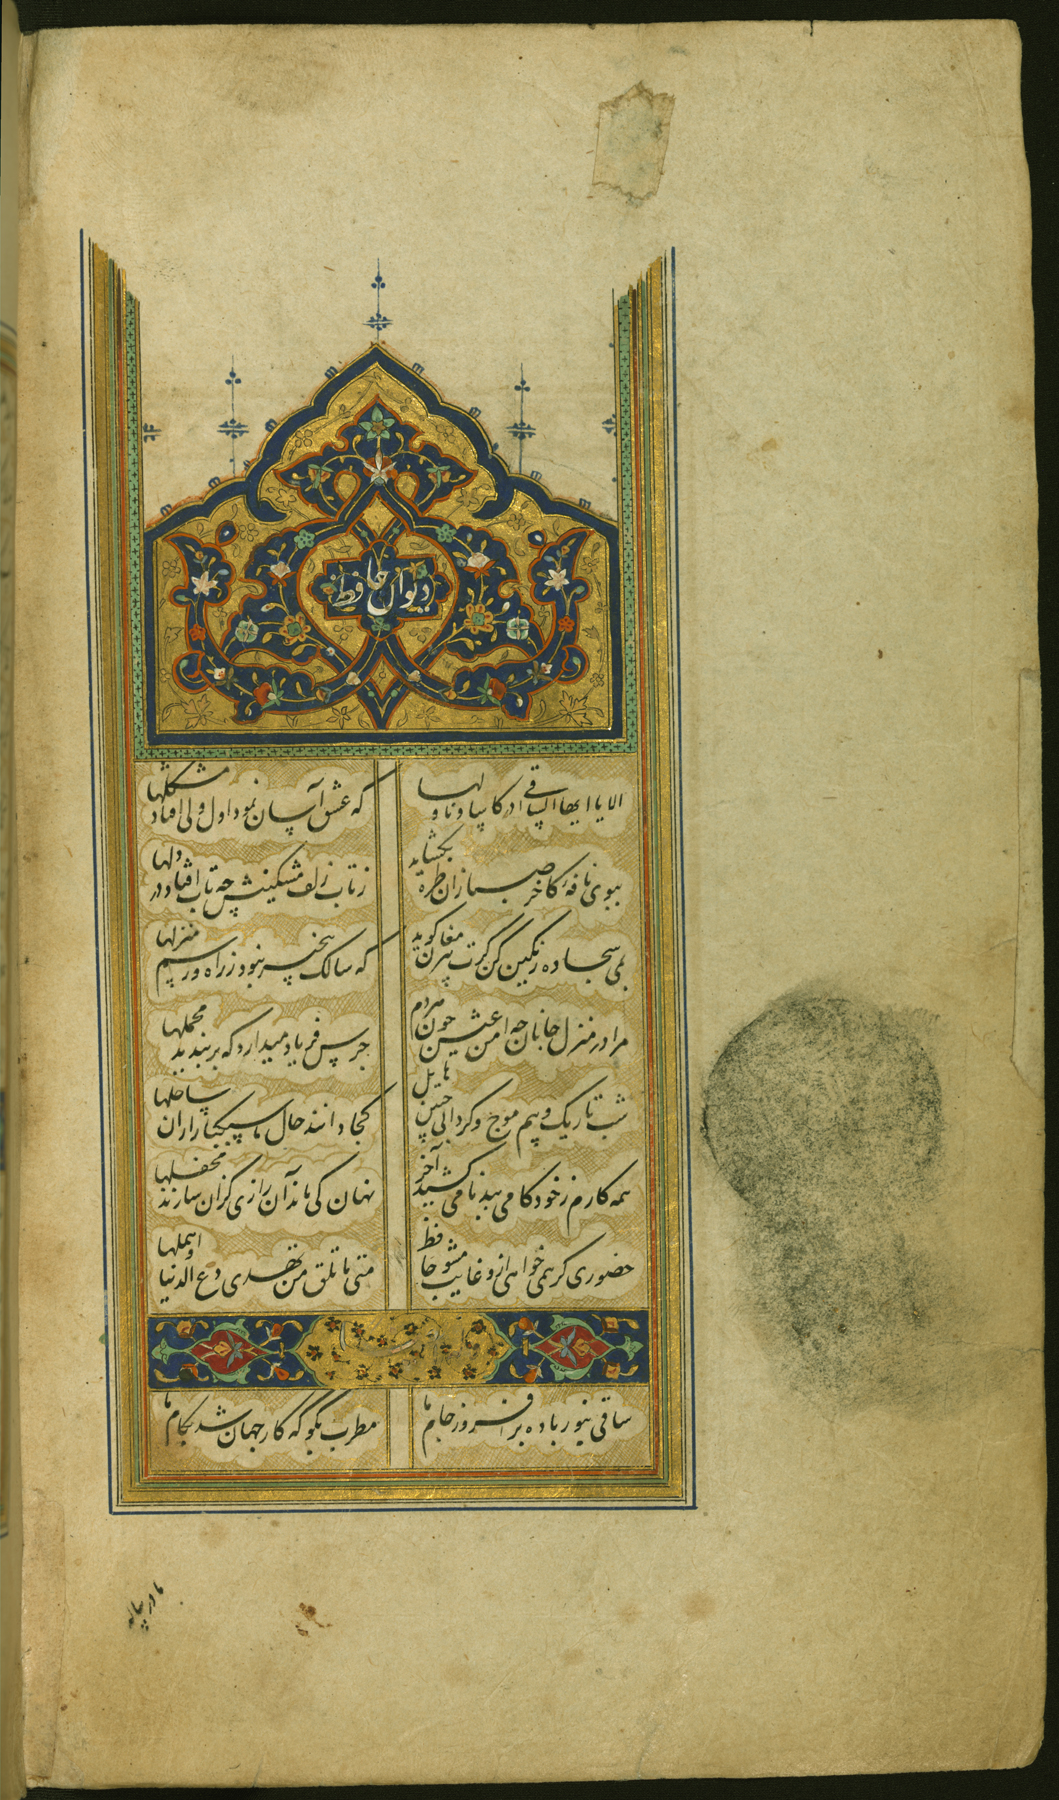 ديوان حافظ
الا يا ايها الساقى ادر كاسا و ناولها
كه عشق آسان نمود اول ولى افتاد مشكلها
ببوى نافهٔ كاخر صبا زان طره بكشايد
ز تاب زلف مشكينش چه تاب افتاد در دلها
بمى سجاده رنكين كن كرت پير مغان كويد
كه سالك بيخبر نبود ز راه و رسم منزلها
مرا در منزل جانان چه امن عيش چون هردم
جرس فرياد ميدارد كه بربنديد محملها
شب تاريك و بيم موج و كردابى چنين هايل
كجا دانند حال ما سبكباران ساحلها
همه كارم ز خود كامى ببدنامى كشيد آخر
نهان كى ماند آن رازى كزان سازند محفلها
حضورى كر همى خواهى ازو غايب مشو حافظ
متى ما تلق من تهوى دع الدنيا و اهملها
ساقى بنور باده برافروز جام ما
مطرب بكو كه كار جهان شد بكام ما
ما در پياله